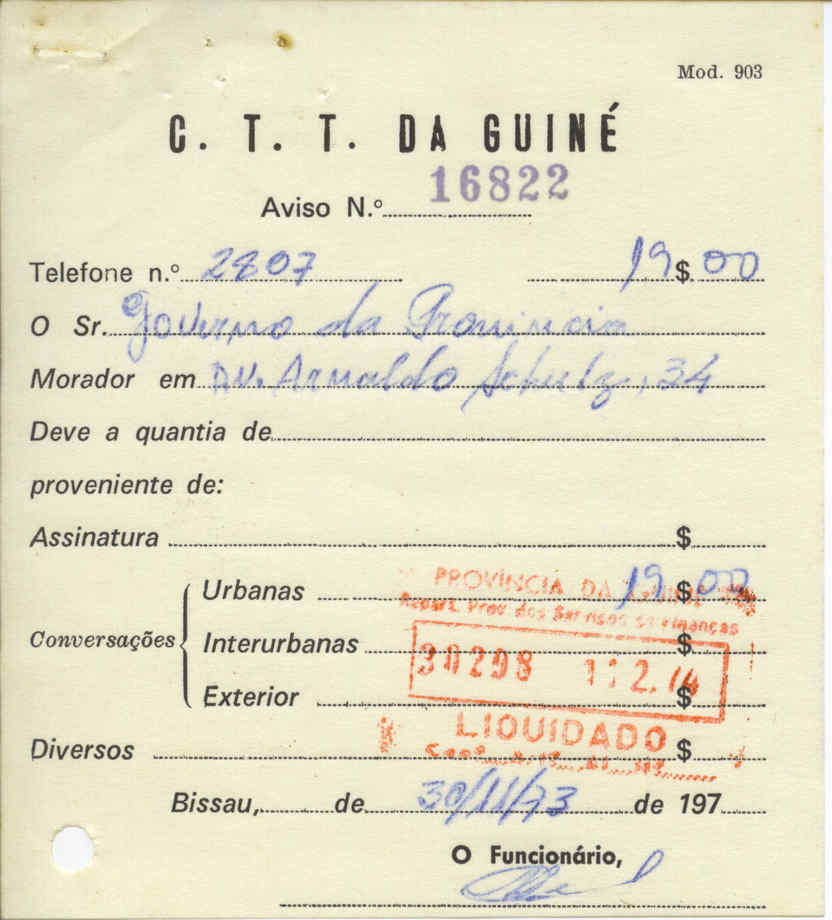 Mod. 903
C. T. T. DA GUINÉ
Aviso N.º 16822
Telefone n.º 2807 19$00
O Sr. Governo da Provincia
Morador em Av. Arnaldo Schulz, 34
Deve a quantia de
proveniente de:
Assinatura $
Conversações
Urbanas 19$00
Interurbanas $
Exterior $
Diversos $
PROVÍNCIA DA GUINÉ
Repart. Prov. dos Serviços de Finanças
30298 11.2.74
LIQUIDADO
Bissau, de 30/11/73 de 197
O Funcionário,